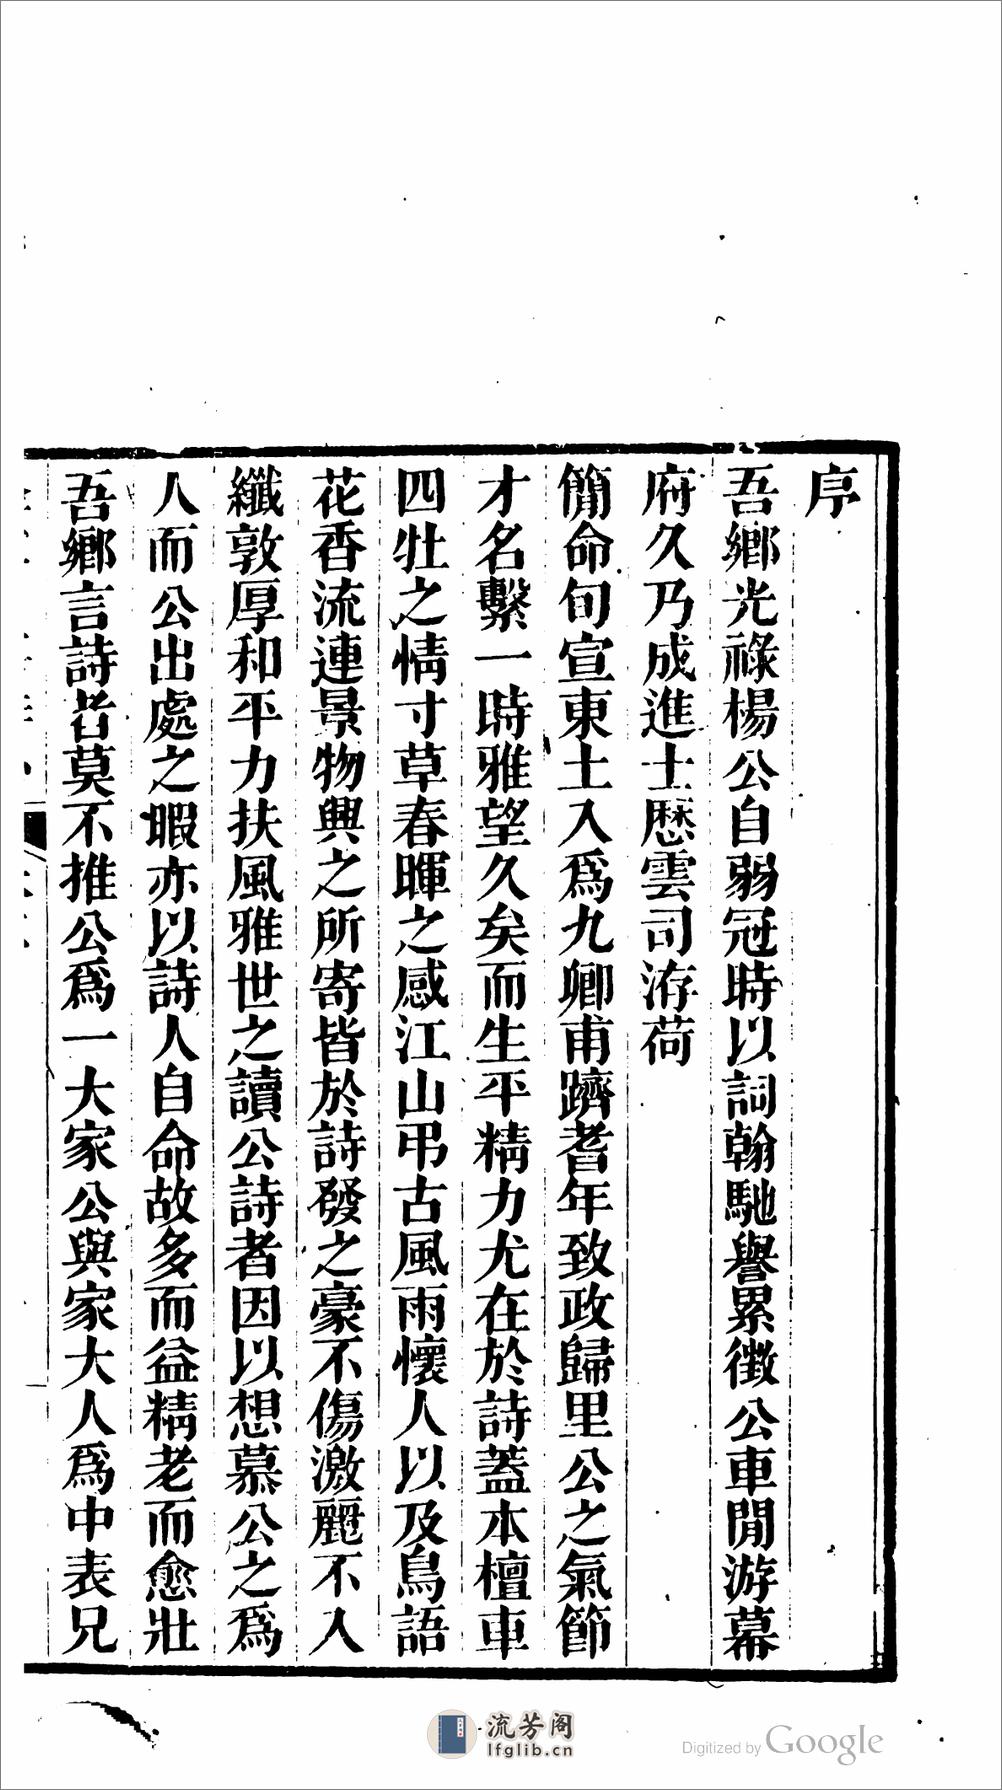 序
吾鄉光祿楊公自弱冠時以詞翰馳譽累徵公車閒游幕
府久乃成進士歷雲司洊荷
簡命旬宣東土入爲九卿甫躋耆年致政歸里公之氣節
才名繫一時雅望久矣而生平精力尤在於詩蓋本檀車
四牡之情寸草春暉之感江山弔古風雨懷人以及鳥語
花香流連景物興之所寄皆於詩發之豪不傷激麗不入
纖敦厚和平力扶風雅世之讀公詩者因以想慕公之爲
人而公出處之暇亦以詩人自命故多而益精老而愈壯
吾鄉言詩者莫不推公爲一大家公與家大人爲中表兄
流芳阁
lfglib.cn
Digitized by Google